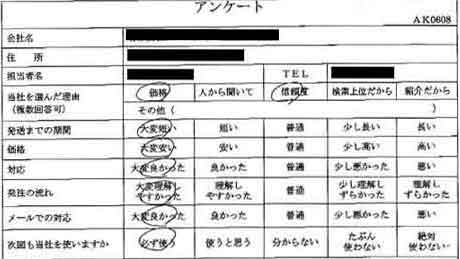 アンケート
AK0608
会社名
住 所
担当者名 TEL
当社を選んだ理由 価格 人から聞いて 信頼度 検索上位だから 紹介だから
(複数回答可) その他 ( )
発送までの期間 大変短い 短い 普通 少し長い 長い
価格 大変安い 安い 普通 少し高い 高い
対応 大変良かった 良かった 普通 少し悪かった 悪い
発注の流れ 大変理解し 理解し 普通 少し理解し 理解し
やすかった やすかった ずらかった ずらかった
メールでの対応 大変良かった 良かった 普通 少し悪かった 悪い
次回も当社を使いますか 必ず使う 使うと思う 分からない たぶん 絶対
使わない 使わない